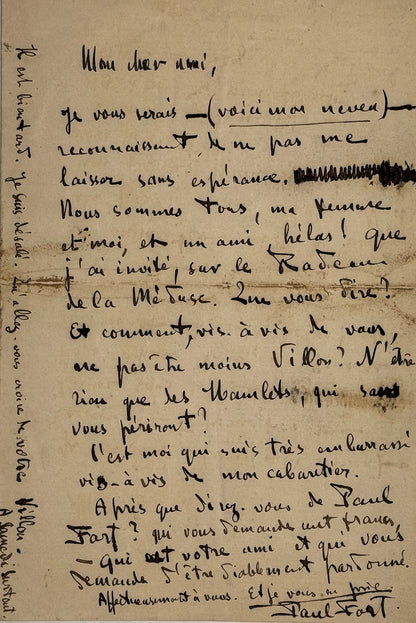 Mon cher ami,
Je vous serais —(voici mon neveu)—
reconnaissant de ne pas me
laisser sans espérance.
Nous sommes tous, ma femme
et moi, et un ami, hélas! que
j'ai invité, sur le Radeau
de la Méduse. Que vous dire?
Et comment, vis-à-vis de vous,
ne pas être moins Villon? N'être
rien que des Hamlets, qui sans
vous périront?
C'est moi qui suis très embarrassé
vis-à-vis de mon cabaretier.
Après que direz-vous de Paul
Fort? qui vous demande cent francs,
— qui est votre ami et qui vous
demande d'être diablement pardonné.
Affectueusement à vous. Et je vous en prie.
Paul Fort.
Il est bien tard. Je suis désolé. Qu'allez-vous croire de votre Villon.
A lundi surtout.